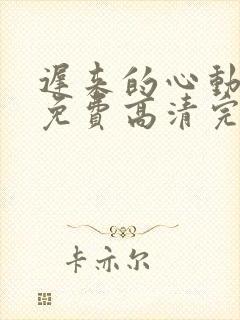 遲来的心動
免費高清完
卡亦尔